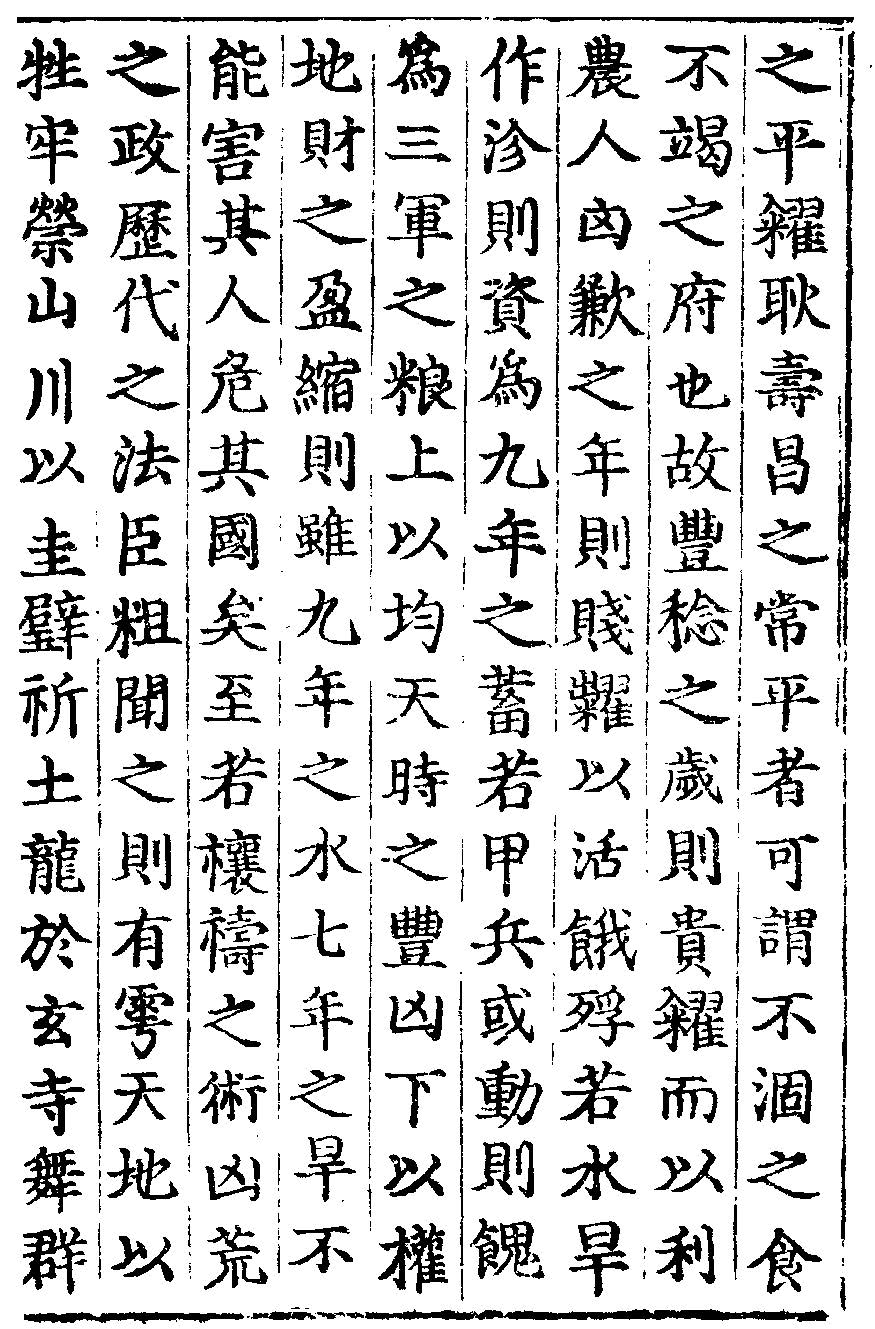 之平糴耿壽昌之常平者可謂不涸之食
不竭之府也故豐稔之歲則貴糴而以利
農人凶歉之年則賤糶以活餓殍若水旱
作沴則資爲九年之蓄若甲兵或動則餽
爲三軍之粮上以均天時之豐凶下以權
地財之盈縮則雖九年之水七年之旱不
能害其人危其國矣至若禳禱之術凶荒
之政歷代之法臣粗聞之則有雩天地以
牲牢禜山川以圭璧祈土龍於玄寺舞群